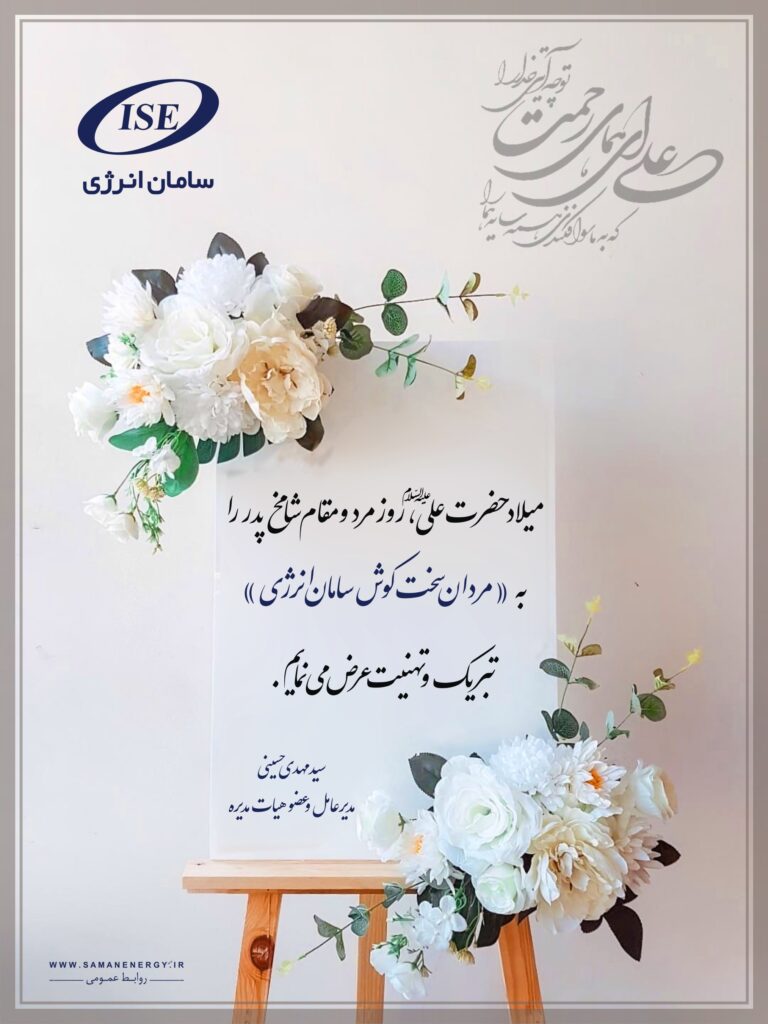 ISE
سامان انرژی
علی ای همای رحمت
تو چه آیتی خدا را
که به ما سوا فکندی همه سایه هما را
میلاد حضرت علی علیه‌السلام، روز مرد و مقام شامخ پدر را
به « مردان سخت کوش سامان انرژی »
تبریک و تهنیت عرض می نمایم .
سید مهدی حسینی
مدیر عامل و عضو هیات مدیره
WWW.SAMANENERGY.IR
روابط عمومی